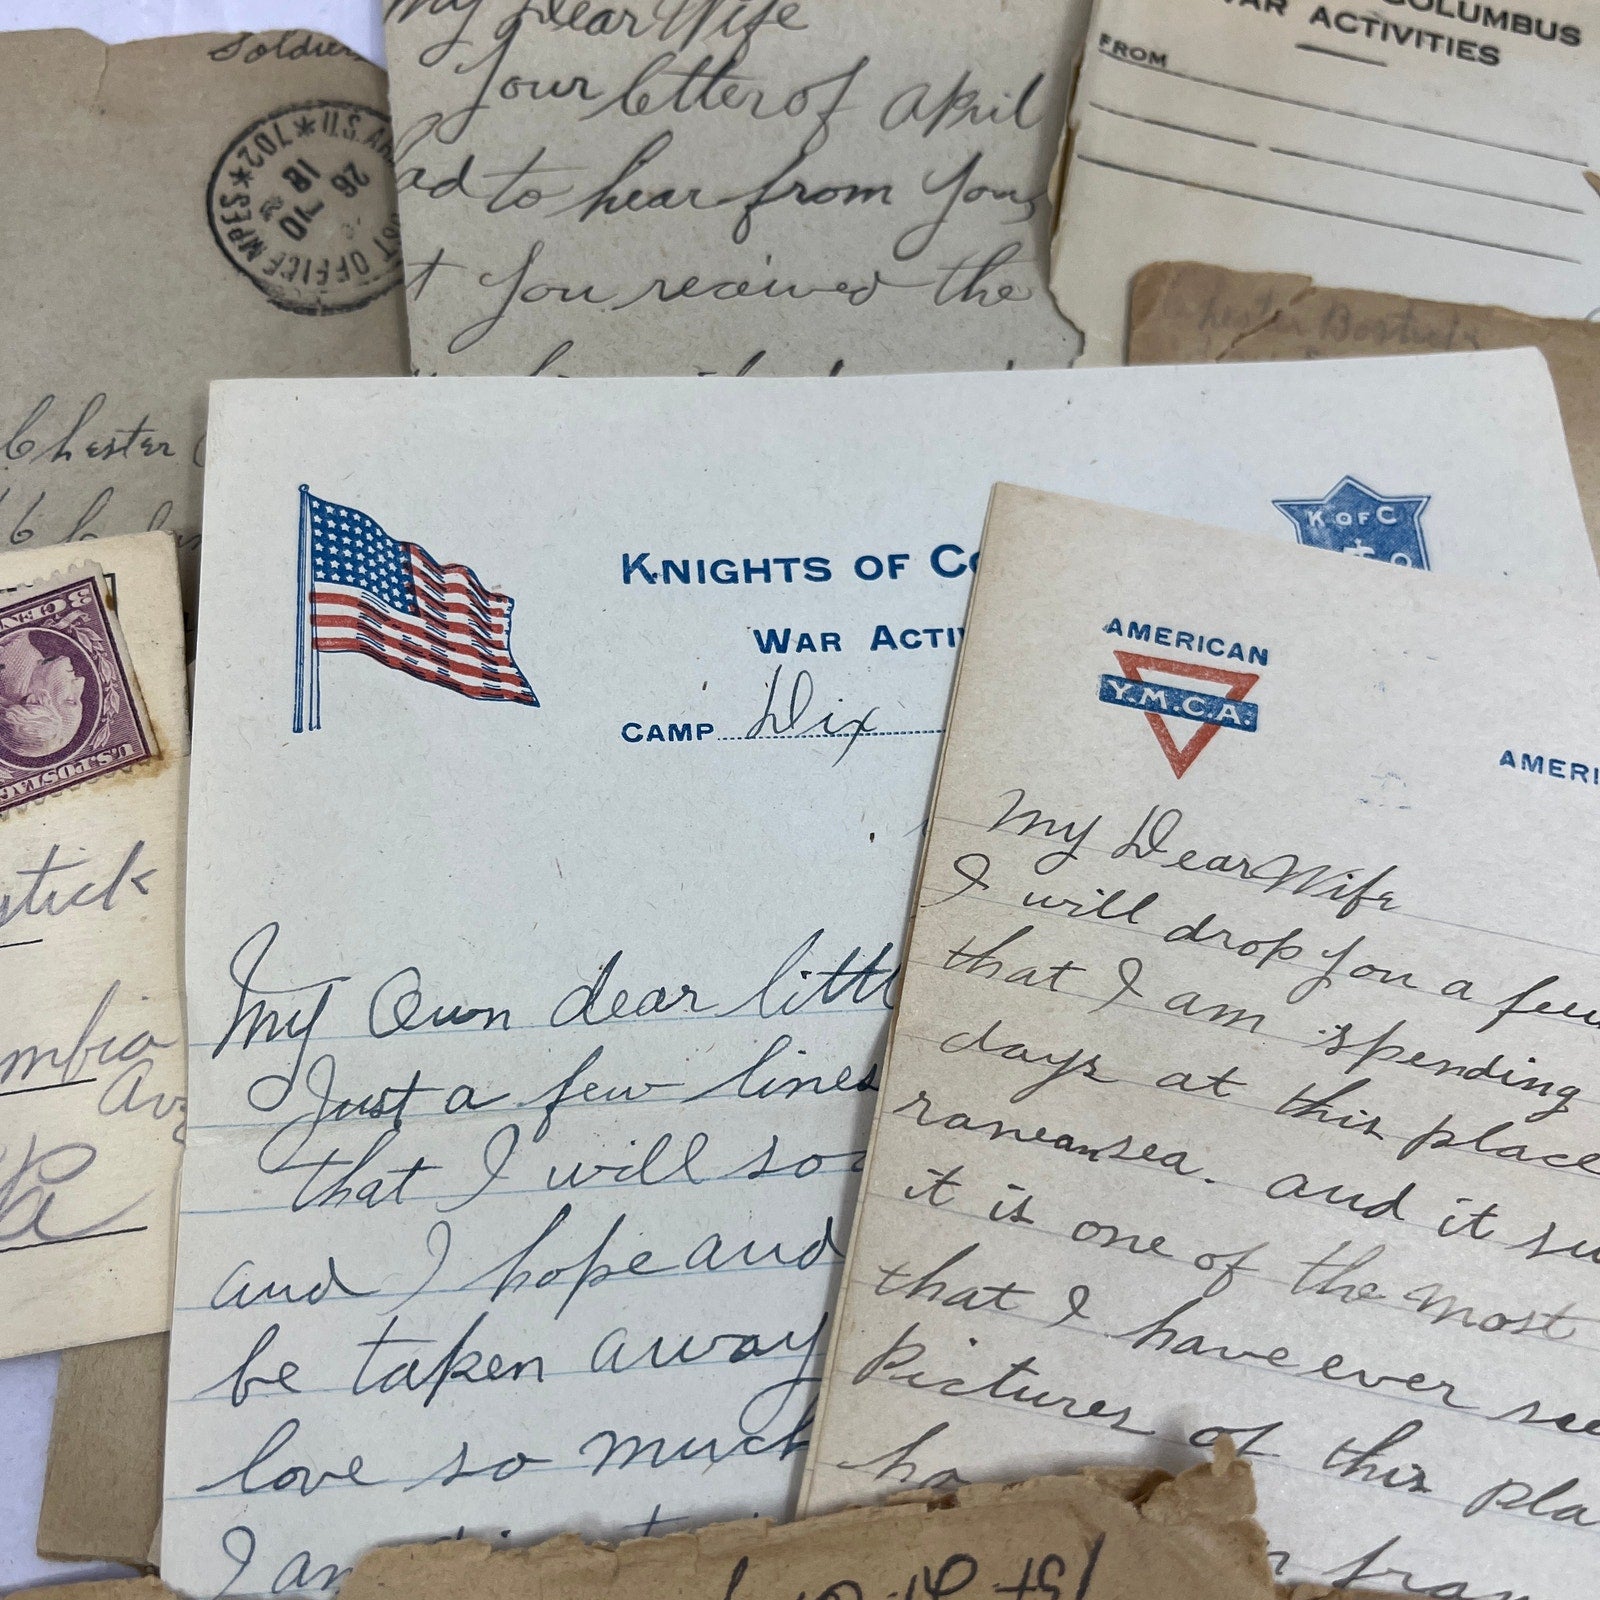 Soldier
U.S. AR
OFFICE MPES
*702*
26
18
My Dear Wife
Your letter of April
to hear from you,
you received the
COLUMBUS
WAR ACTIVITIES
FROM
Chester Bostick
Chester
6
U.S. POSTAG
stick
mbia
Av
Pa
KNIGHTS OF CO
WAR ACTIV
CAMP Dix
K OF C
My Own dear littl
Just a few lines
that I will so
and I hope and
be taken away
love so much
I am
AMERICAN
Y.M.C.A.
AMERI
My Dear Wife
I will drop you a few
that I am spending
days at this place
ranean sea. and it su
it is one of the most
that I have ever see
Pictures of this pla
ha
fran
1st